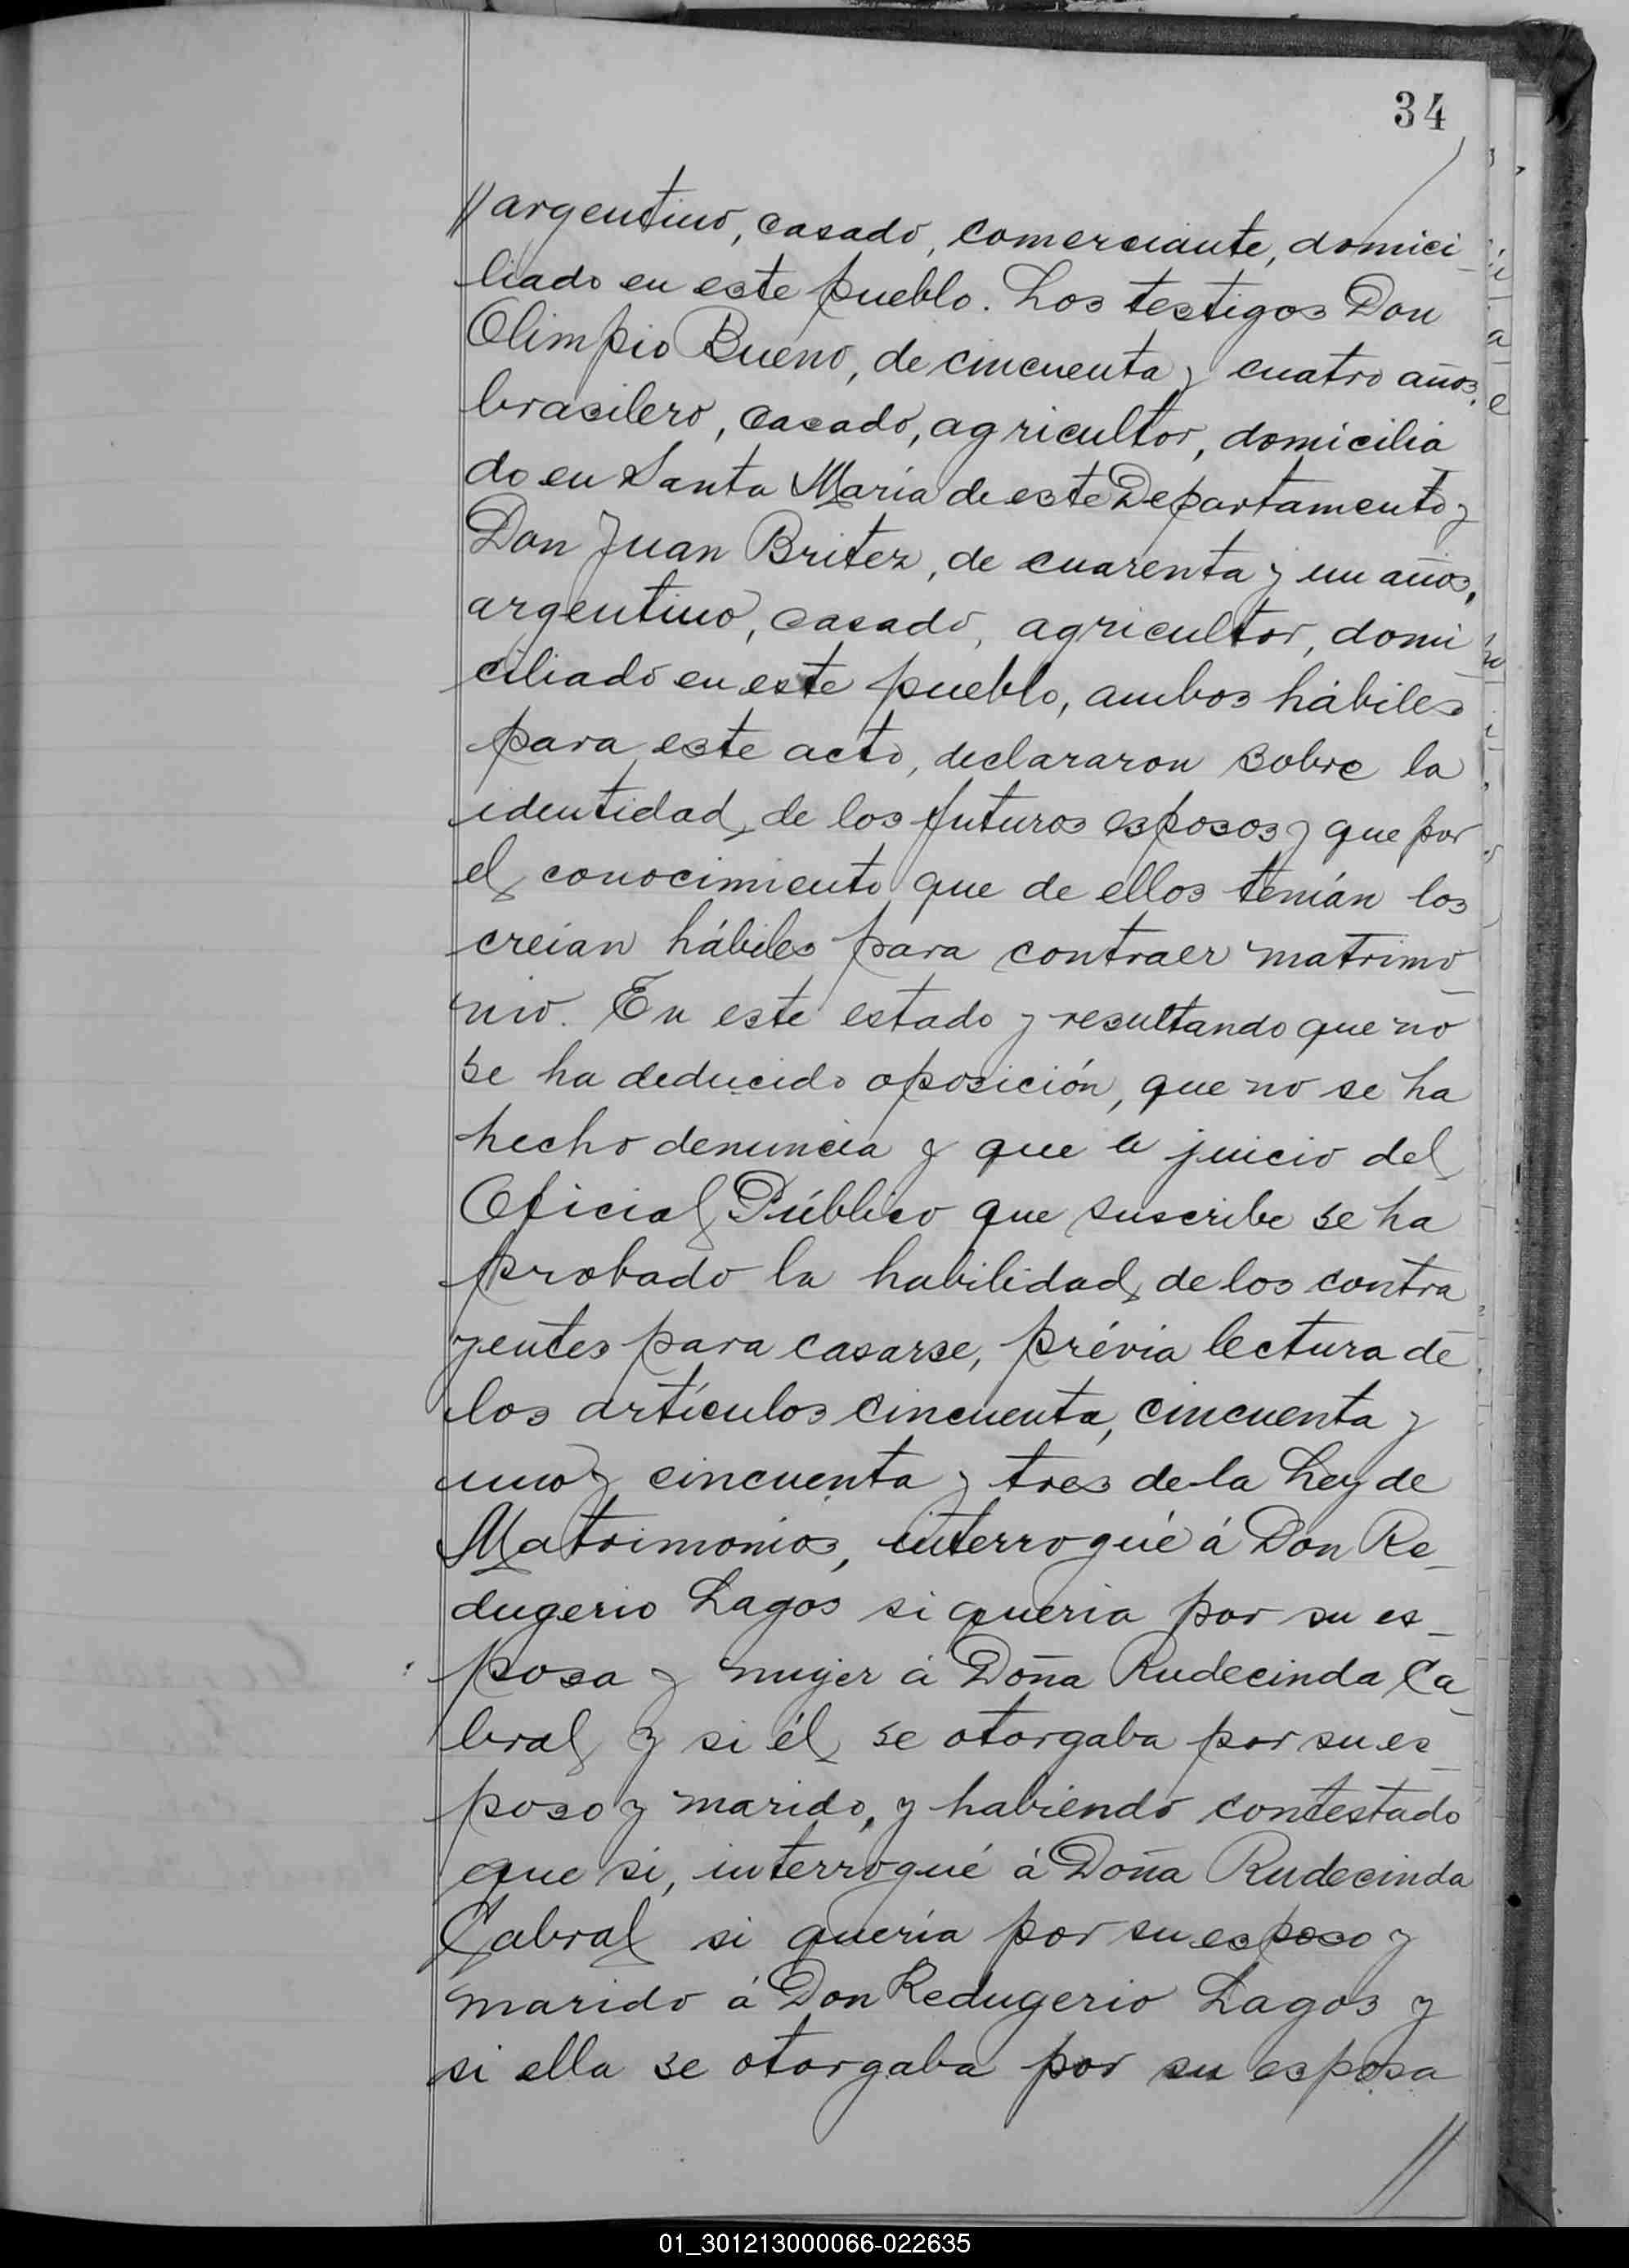 34
// argentino, casado, comerciante, domici_
liado en este pueblo. Los testigos Don
Olimpio Bueno, de cincuenta y cuatro años,
brasilero, casado, agricultor, domicilia
do en Santa María de este Departamento y
Don Juan Britez, de cuarenta y un años,
argentino, casado, agricultor, domi_
ciliado en este pueblo, ambos hábiles
para este acto, declararon sobre la
identidad de los futuros esposos y que por
el conocimiento que de ellos tenían los
creían hábiles para contraer matrimo_
nio. En este estado y resultando que no
se ha deducido oposición, que no se ha
hecho denuncia y que a juicio del
Oficial Público que suscribe se ha
probado la habilidad de los contra_
yentes para casarse, prévia lectura de
los artículos cincuenta, cincuenta y
uno y cincuenta y tres de la Ley de
Matrimonios, interrogué á Don Re_
dugerio Lagos si queria por su es_
posa y mujer á Doña Rudecinda Ca_
bral y si él se otorgaba por su es_
poso y marido, y habiendo contestado
que si, interrogué á Doña Rudecinda
Cabral si quería por su esposo y
marido á Don Redugerio Lagos y
si ella se otorgaba por su esposa
//
01_301213000066-022635